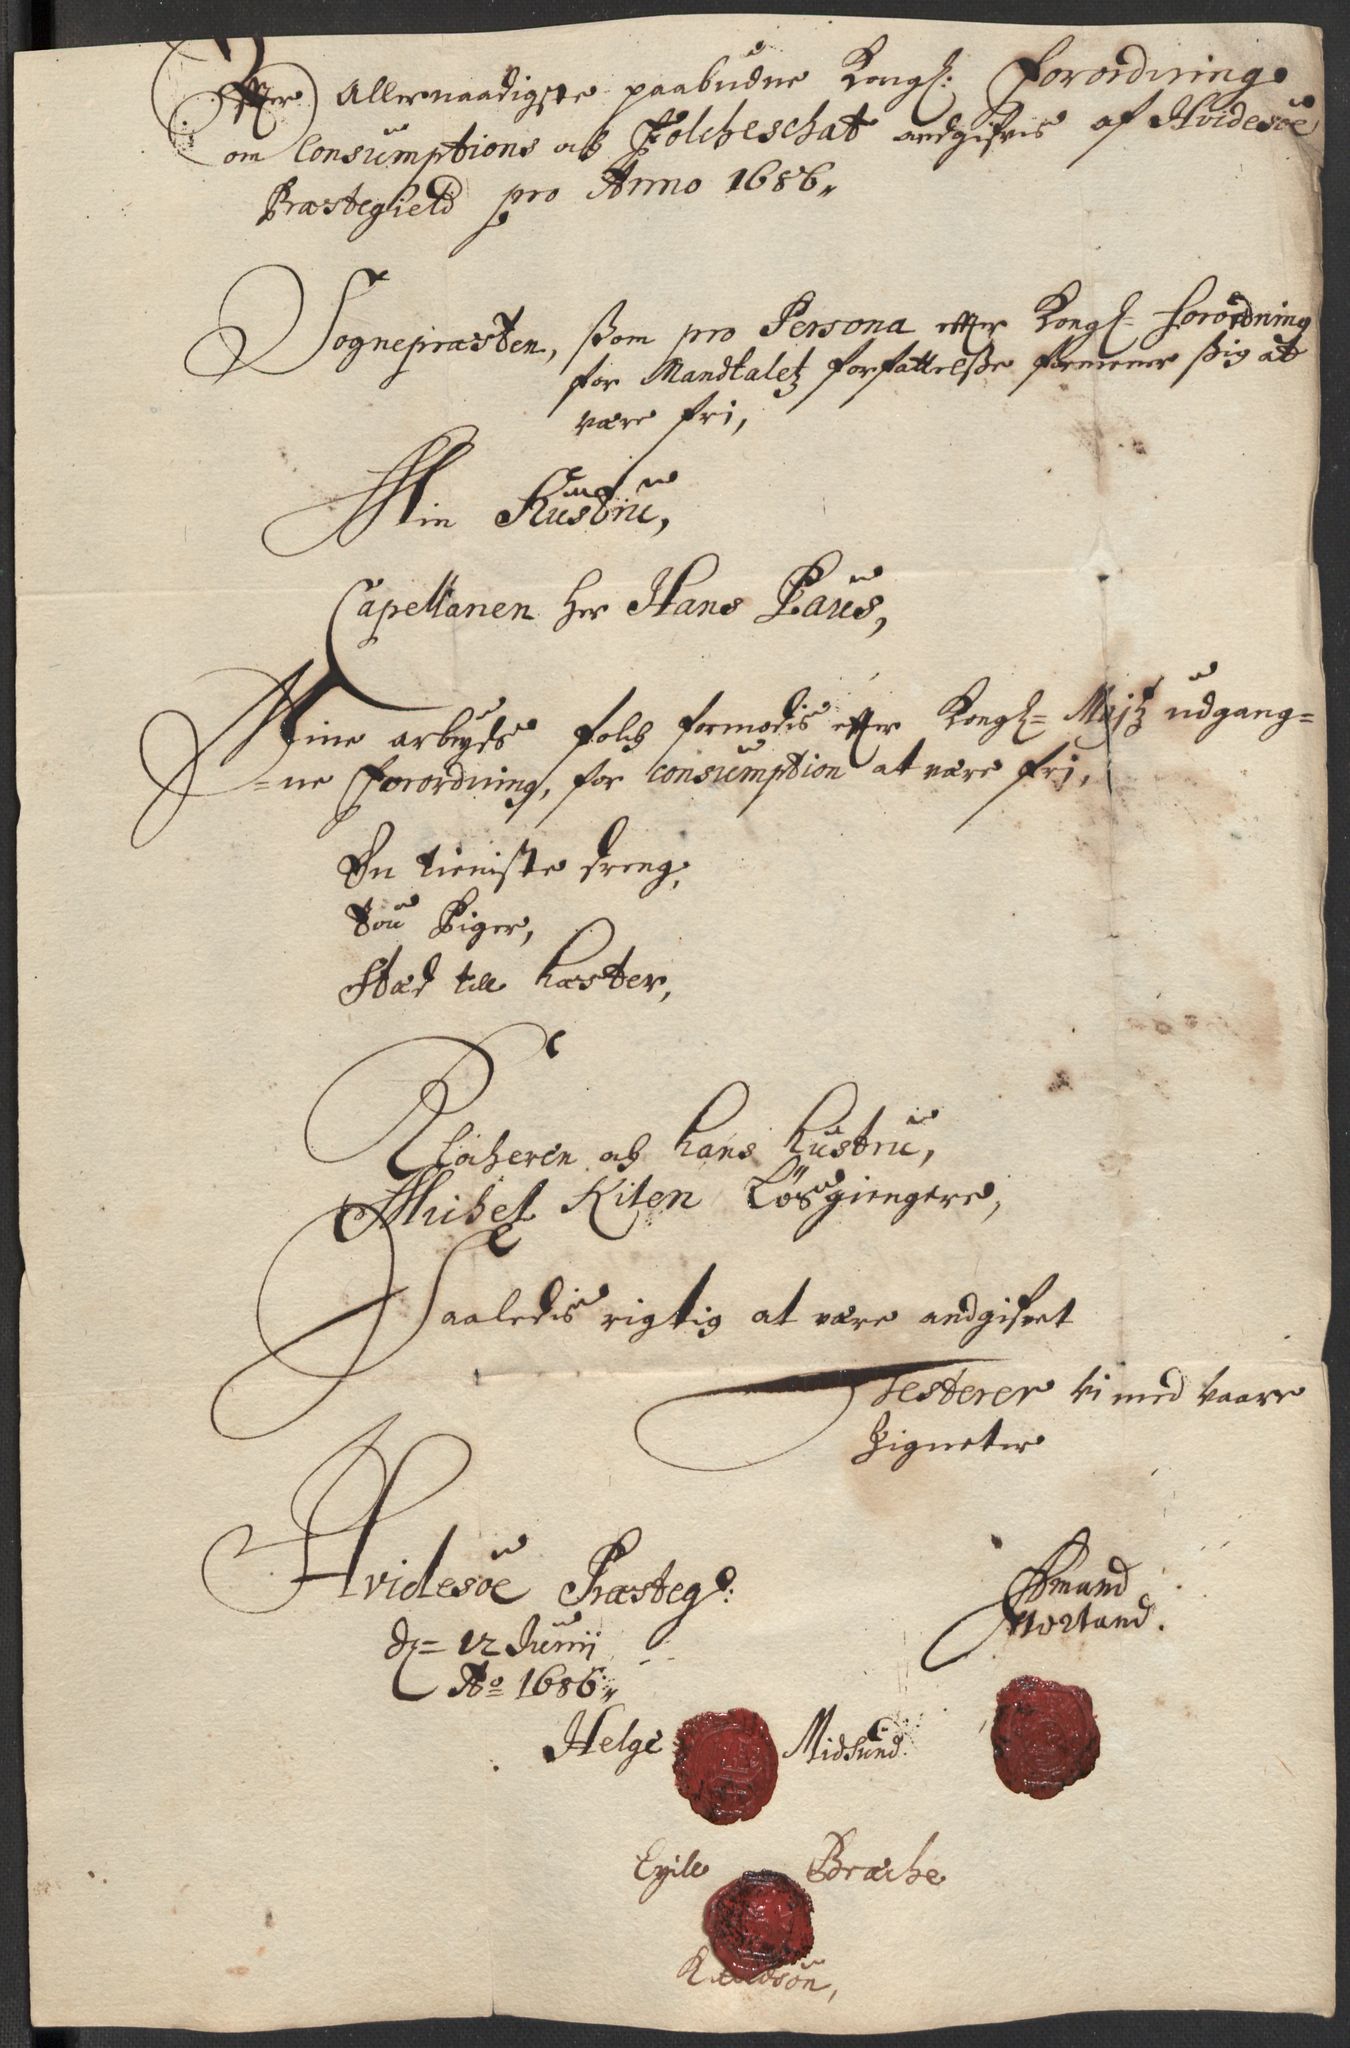 Efter Allernaadigste paabudne Kongl: Forordning
om Consumptions och Folcheschat andgifvis af Hvidesöe
Præstegield pro Anno 1686.
Sognepræsten, ßom pro Persona efter Kongl= forordning
for Mandtaletz forfattelße formener ßig at
være fri,
Min Hustru,
Capellanen her Hans Paus,
Mine arbeyds folch formodis efter Kongl= Majtz udgang=
=ne Forordning, for consumption at være fri,
En tieniste dreng,
Tou Piger,
Stæd till hæster,
Klocheren och hans hustru,
Michel Kiten Lösgiengere,
Saaledis rigtig at være andgifvet
Testerer vi med vaare
Zigneter
Hvidesöe Præsteg:
d= 12 Junij
Ao 1686
Amund
Morland.
Helge Midsund
Eyill Bræche
Knudsön,